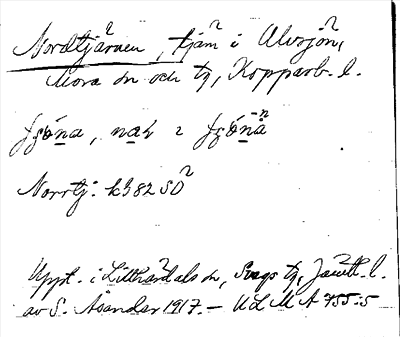 Nordtjärnen, tjärn i Alvsjön,
Mora sn och tg, Kopparb. l.
Norrtj. k382 SO
Uppt. i Lillhärdals sn, Svegs tg, Jämtl. l.
av S. Åsander 1917. – ULMA 755:5